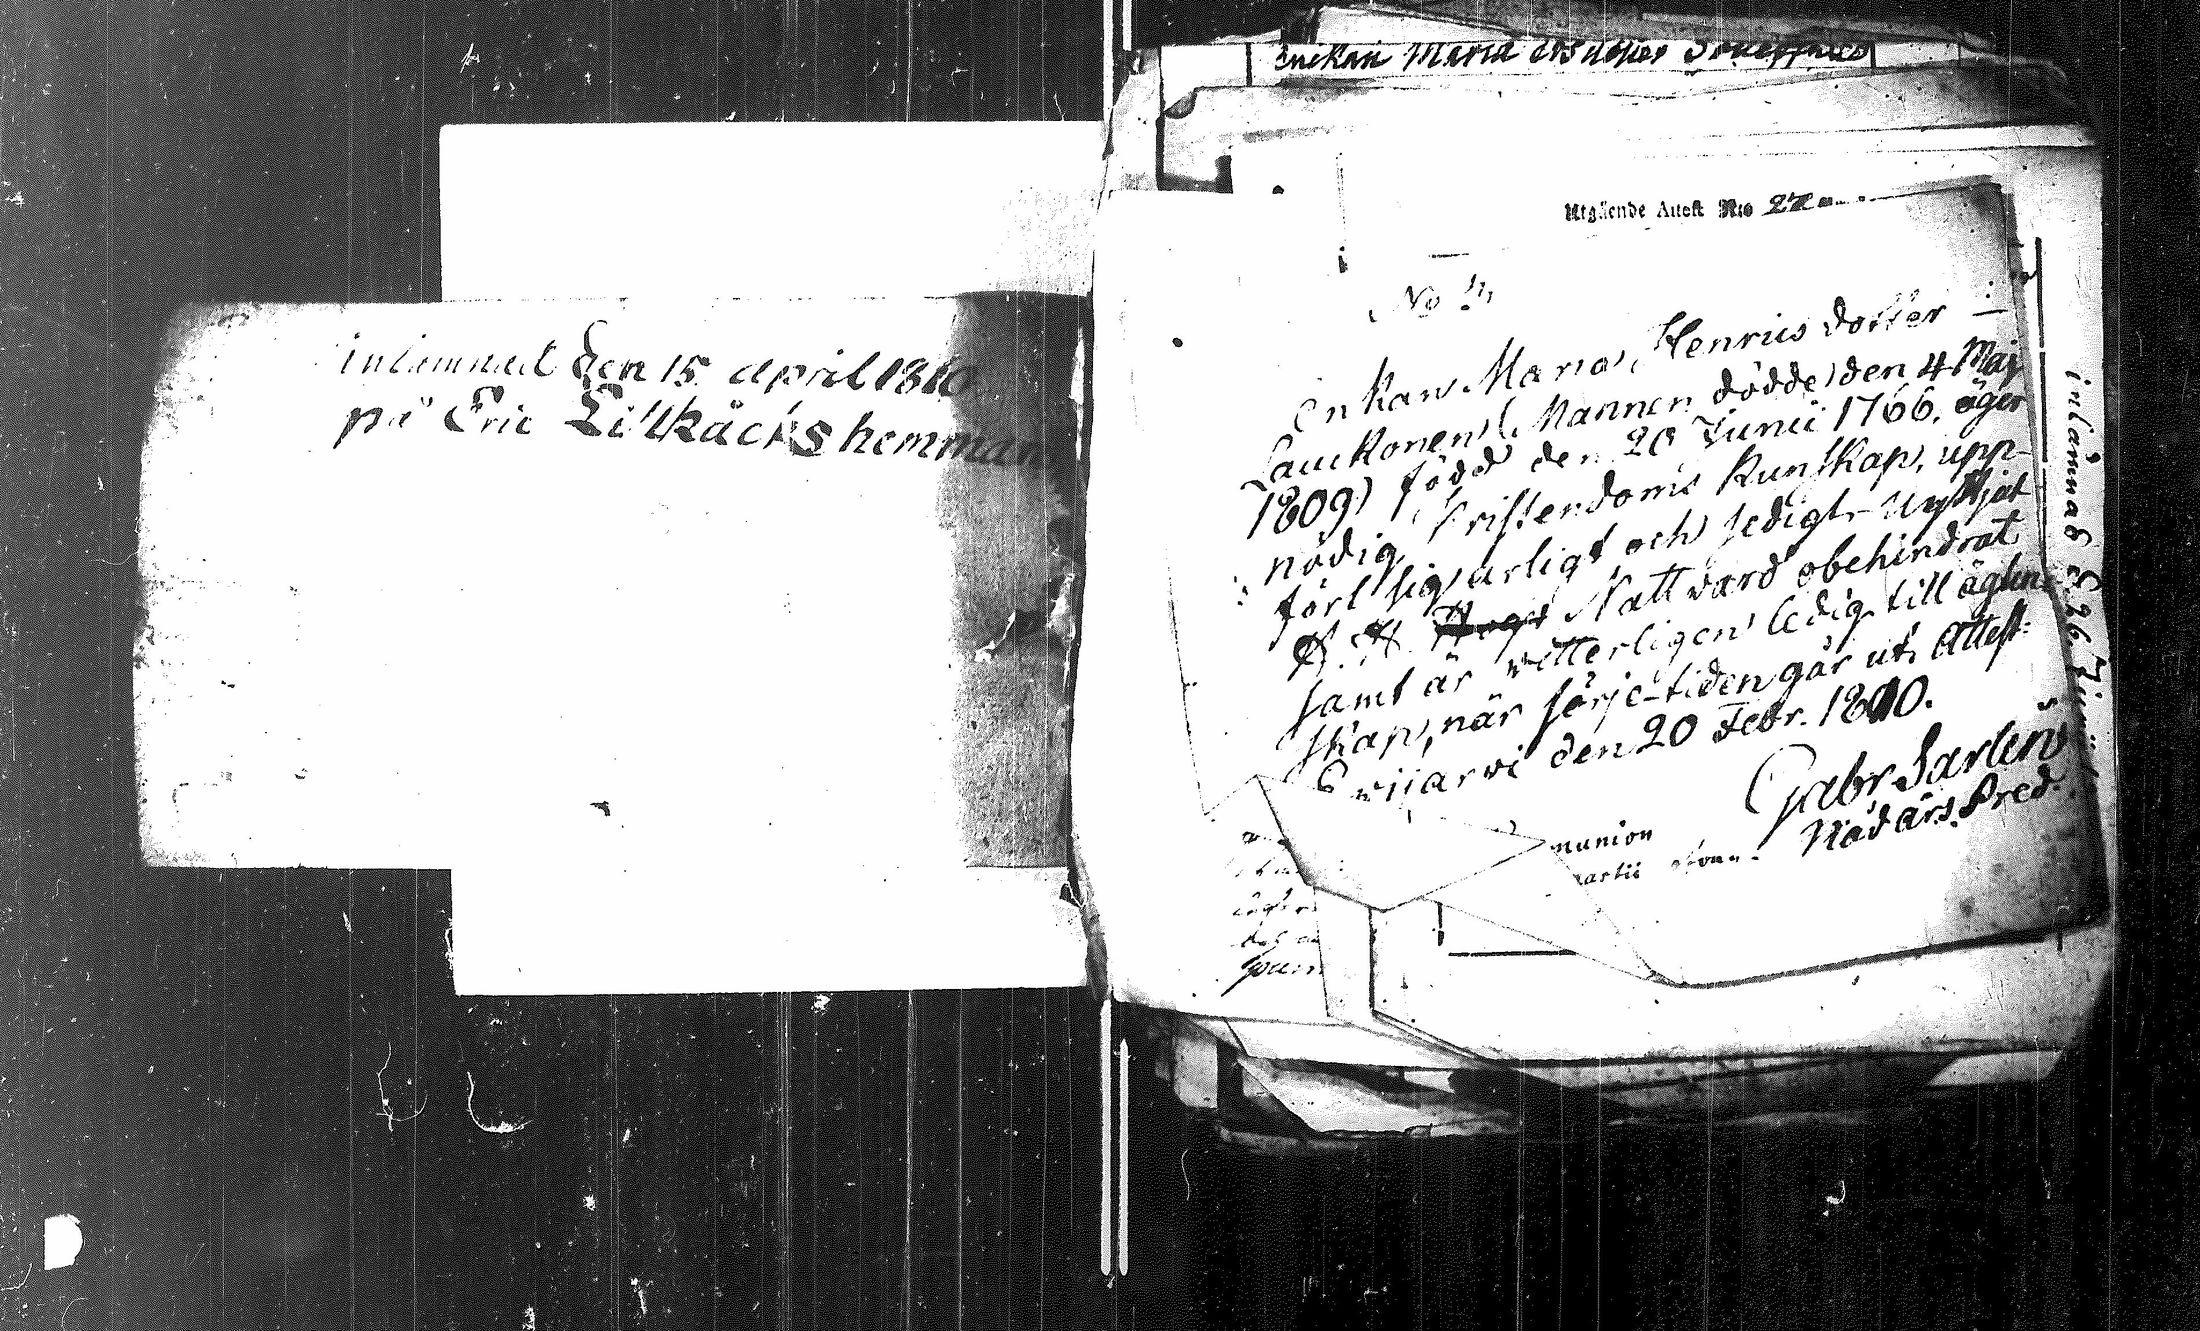 inlemnat den 15 april 1810
på Eric Lillkäcks hemman
Enkan Maria
Utgående Attest N:o 27
No 4,
Enkan Maria Henrics dotter
Lauckonen (Mannen dödde den 4 Maj
1809) född den 20 Junii 1766, äger
nödig Kristendoms Kunskap, upp-
fört sig ärligt och sedigt, nyttjat
H. H. Nattvard obehindrat
samt är vitterligen ledig till ägten-
skap, när sörje-tiden går ut. Attest:
Evijarvi den 20 Febr. 1810.
Gabr Sarlin
Nådårs Pred.
inlämnad d. 26. Juni
munion
artii